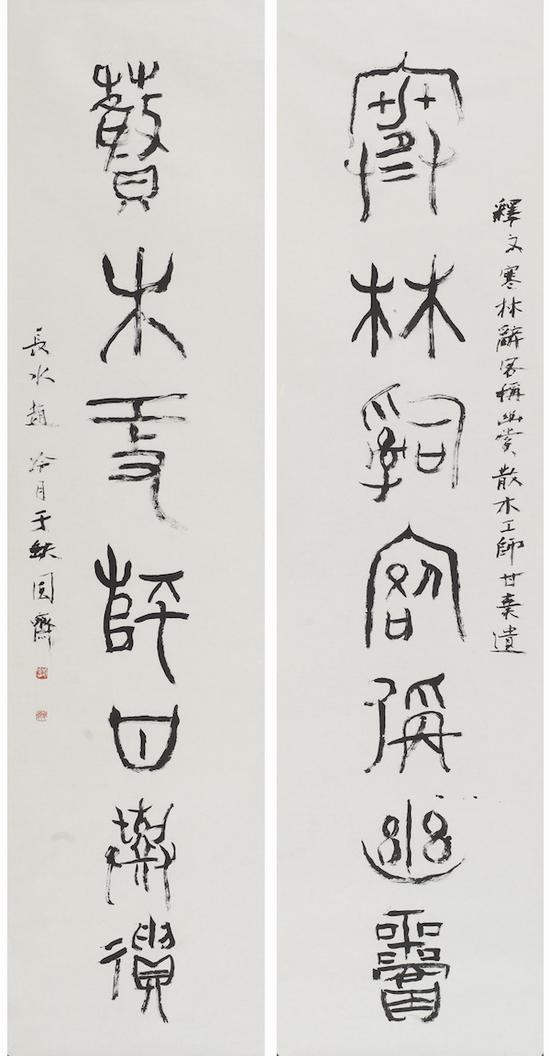 釋文寒林辭客稱幽賞散木工師甘棄遺
寒林辭客稱幽賞
散木工師甘棄遺
長水趙冷月于缺圓齋